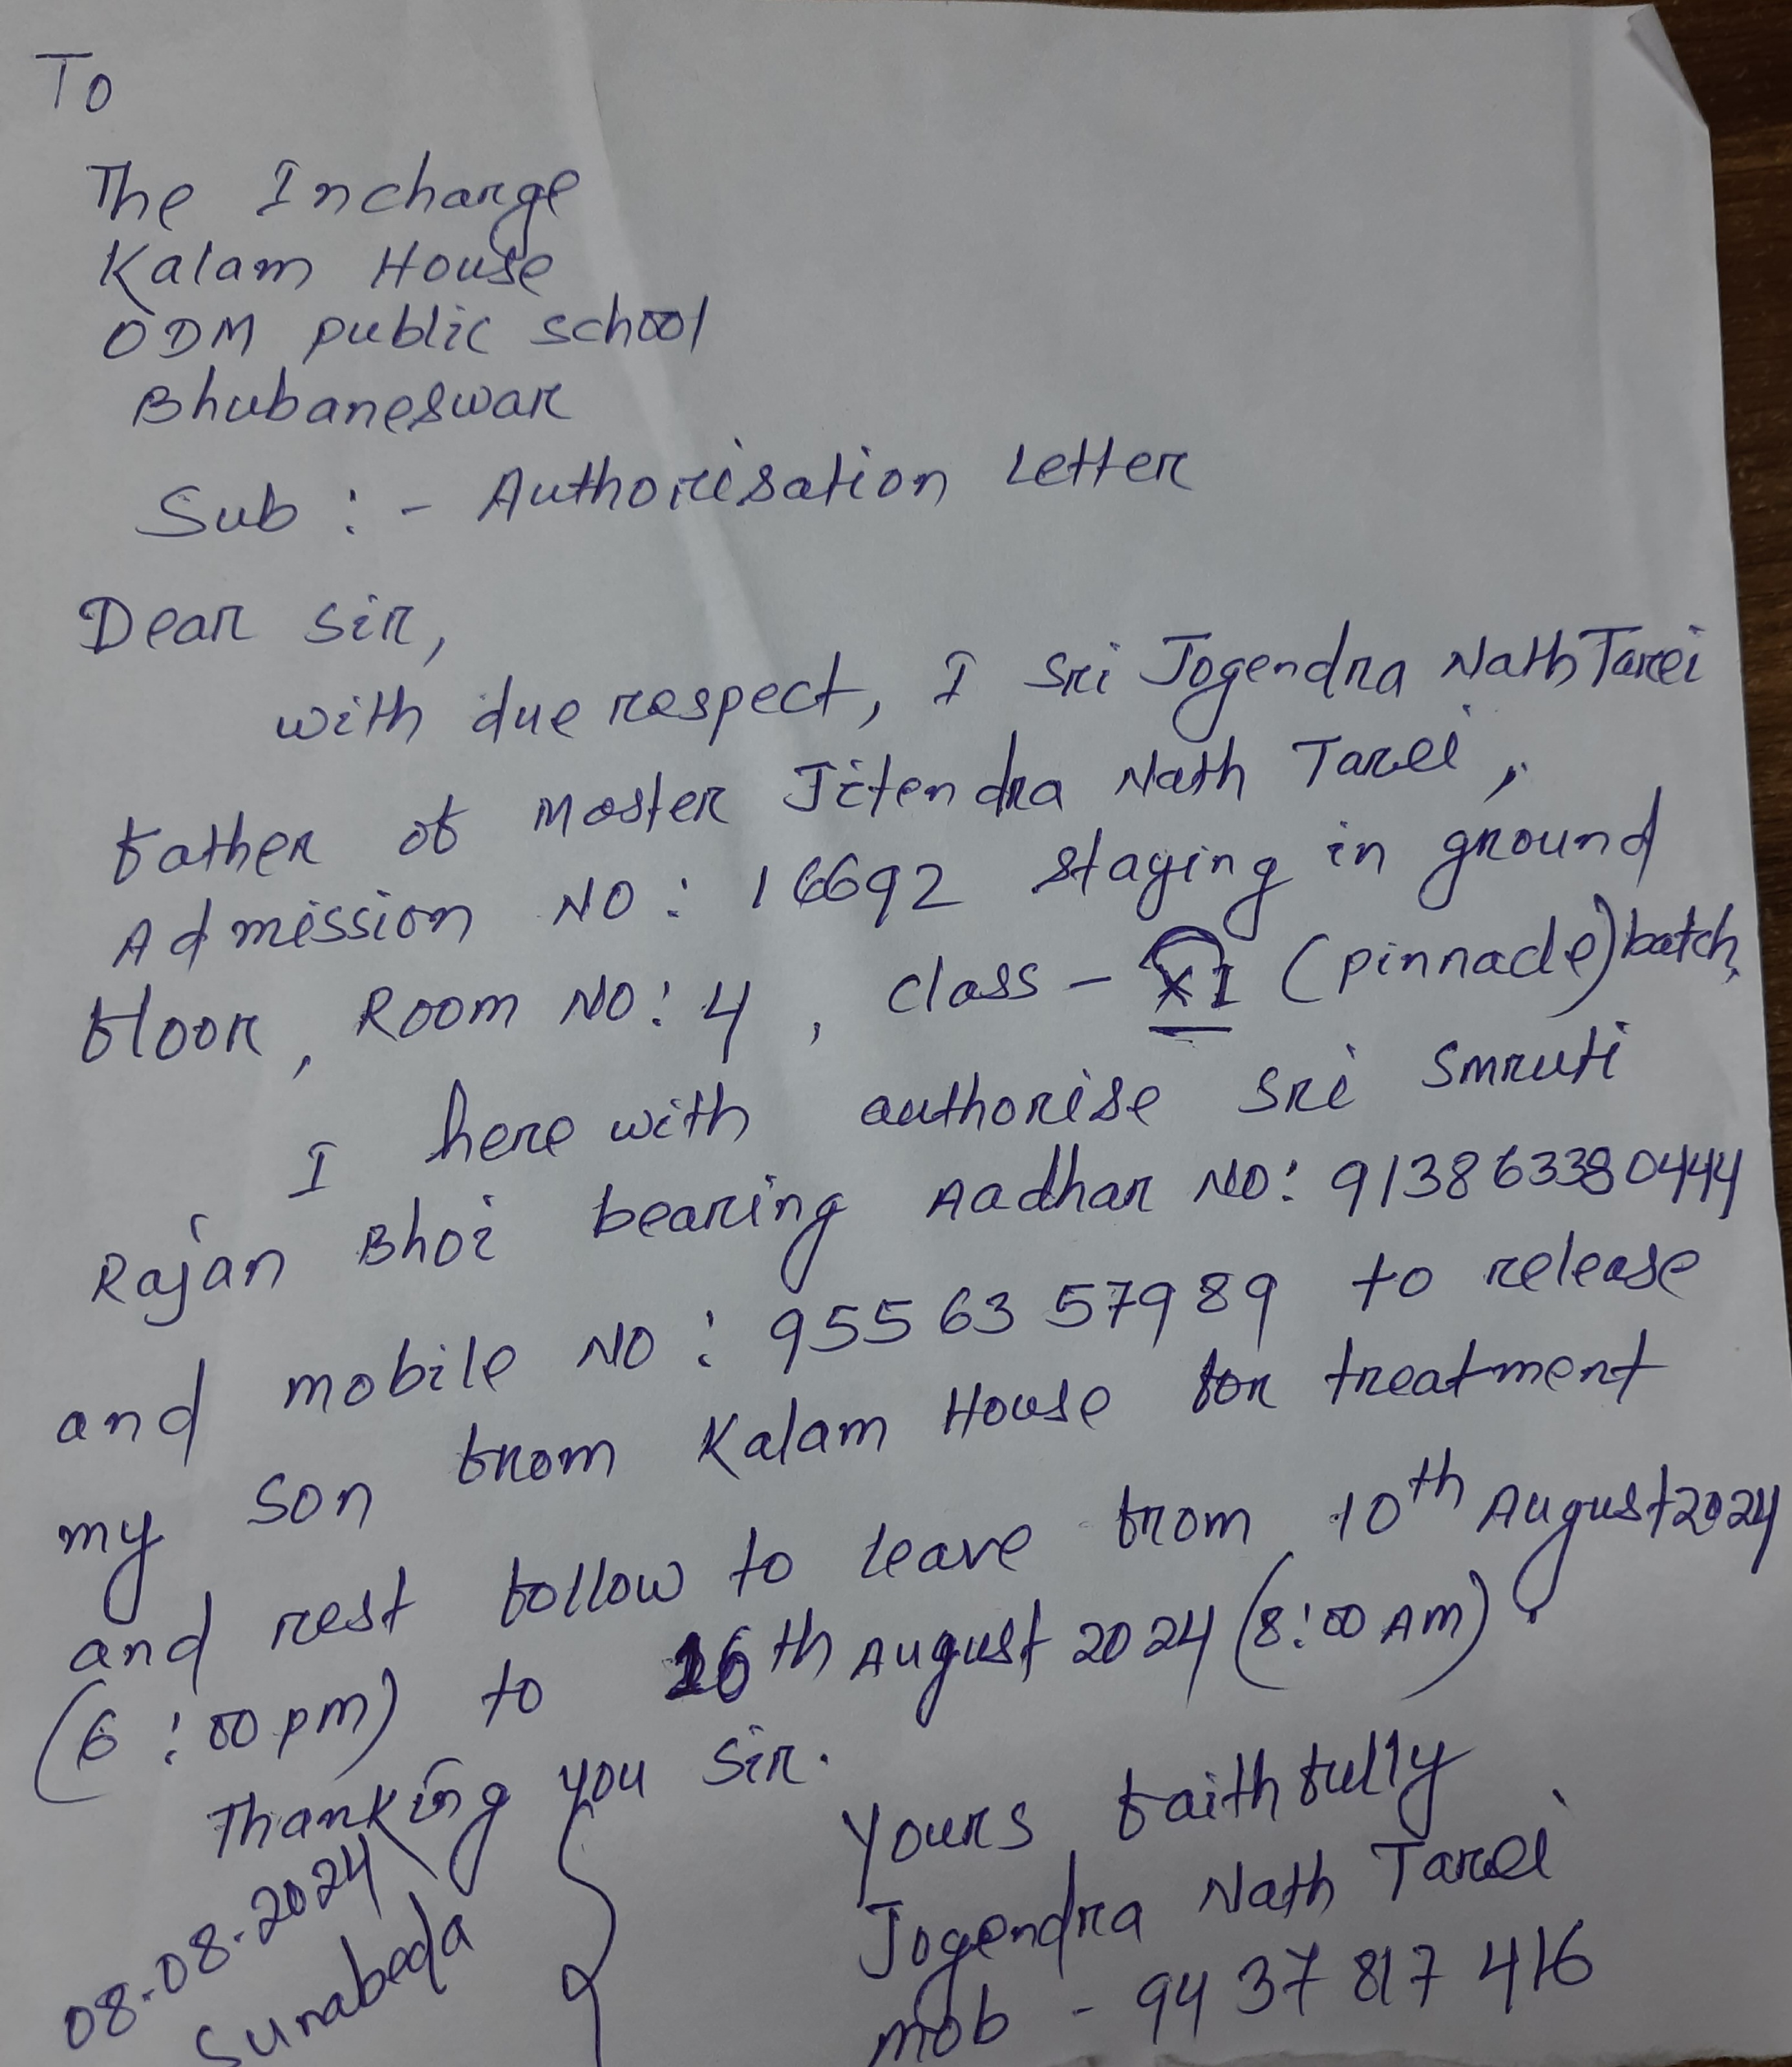 To
The Incharge
Kalam House
ODM public school
Bhubaneswar
Sub :- Authorisation Letter
Dear Sir,
with due respect, I Sri Jogendra Nath Tarei
father of Master Jitendra Nath Tarei,
Admission NO: 16692 staying in ground
floor, Room NO: 4, class - XI (pinnacle) batch.
I here with authorise Sri Smruti
Rajan Bhoi bearing Aadhar NO: 913863380444
and mobile NO: 95563 57989 to release
my son from Kalam House for treatment
and rest follow to leave from 10th August 2024
(6:00 pm) to 16th August 2024 (8:00 AM).
Thanking you Sir.
Yours faithfully
Jogendra Nath Tarei
mob - 94 37 817 416
08-08-2024
Sunabeda